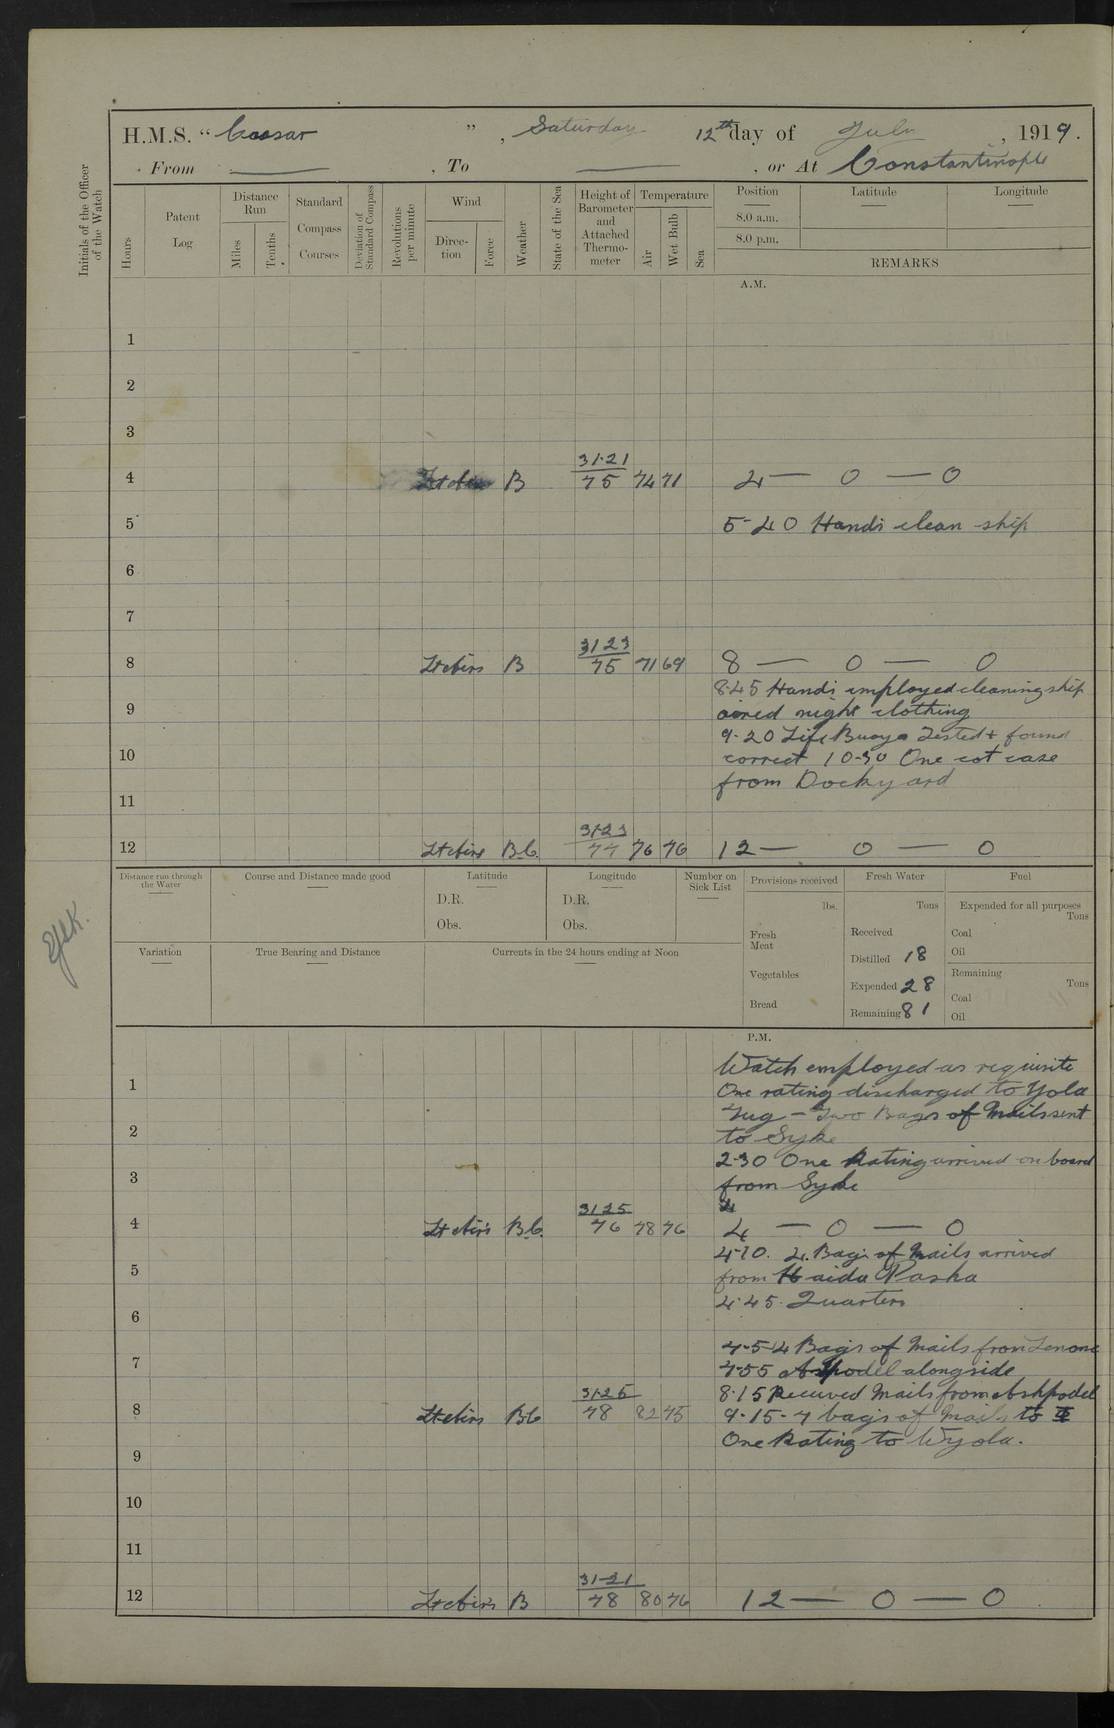 H.M.S. “ Caesar ” , Saturday 12th day of July , 1919.
From — , To — , or At Constantinople
Initials of the Officer of the Watch
Hours
Patent Log
Distance Run
Miles
Tenths
Standard Compass Courses
Deviation of Standard Compass
Revolutions per minute
Wind
Direction
Force
Weather
State of the Sea
Height of Barometer and Attached Thermometer
Temperature
Air
Wet Bulb
Sea
Position
Latitude
Longitude
8.0 a.m.
8.0 p.m.
REMARKS
A.M.
1
2
3
4 Lt airs B 31·21 75 74 71 4 — 0 — 0
5 5-40 Hands clean ship
6
7
8 Lt airs B 31 23 75 71 69 8 — 0 — 0
8·45 Hands employed cleaning ship
9 aired night clothing
9-20 Life Buoys Tested + found
10 correct 10-30 One cot case
from Dockyard
11
12 Lt airs B.C. 31·23 77 76 76 12 — 0 — 0
Distance run through the Water
Course and Distance made good
Latitude
D.R.
Obs.
Longitude
D.R.
Obs.
Number on Sick List
Provisions received
lbs.
Fresh Meat
Vegetables
Bread
Fresh Water
Tons
Received
Distilled 18
Expended 28
Remaining 81
Fuel
Expended for all purposes
Tons
Coal
Oil
Remaining
Tons
Coal
Oil
Variation
True Bearing and Distance
Currents in the 24 hours ending at Noon
P.M.
Watch employed as requisite
1 One rating discharged to Yola
Tug - Two Bags of Mails sent
2 to Syke
2-30 One Rating arrived on board
3 from Syke
4 Lt airs B.C. 31 25 76 78 76 4 — 0 — 0
4-10. 4 Bags of Mails arrived
5 from Haida Pasha
4·45. Quarters
6
7-5-4 Bags of Mails from
7 7-55 alongside
8·15 Received Mails from
8 Lt airs BC 31·25 78 82 75 9-15-7 bags of Mails to
One Rating to Wyola.
9
10
11
12 Lt airs B 31-21 78 80 76 12 — 0 — 0